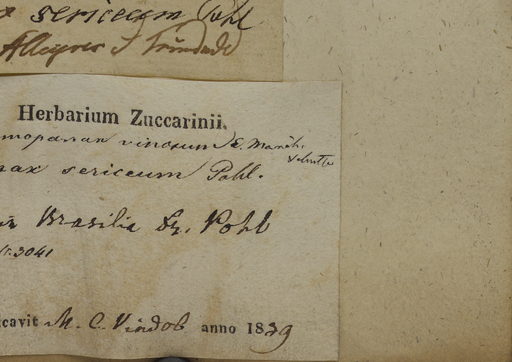 x sericeum Pohl
Allegres & Trindade
Herbarium Zuccarinii.
mopanax vinosum (E. March.
nax sericeum Pohl.
Brasilia Pohl
nr. 3041
icavit M. C. Vindob anno 1839